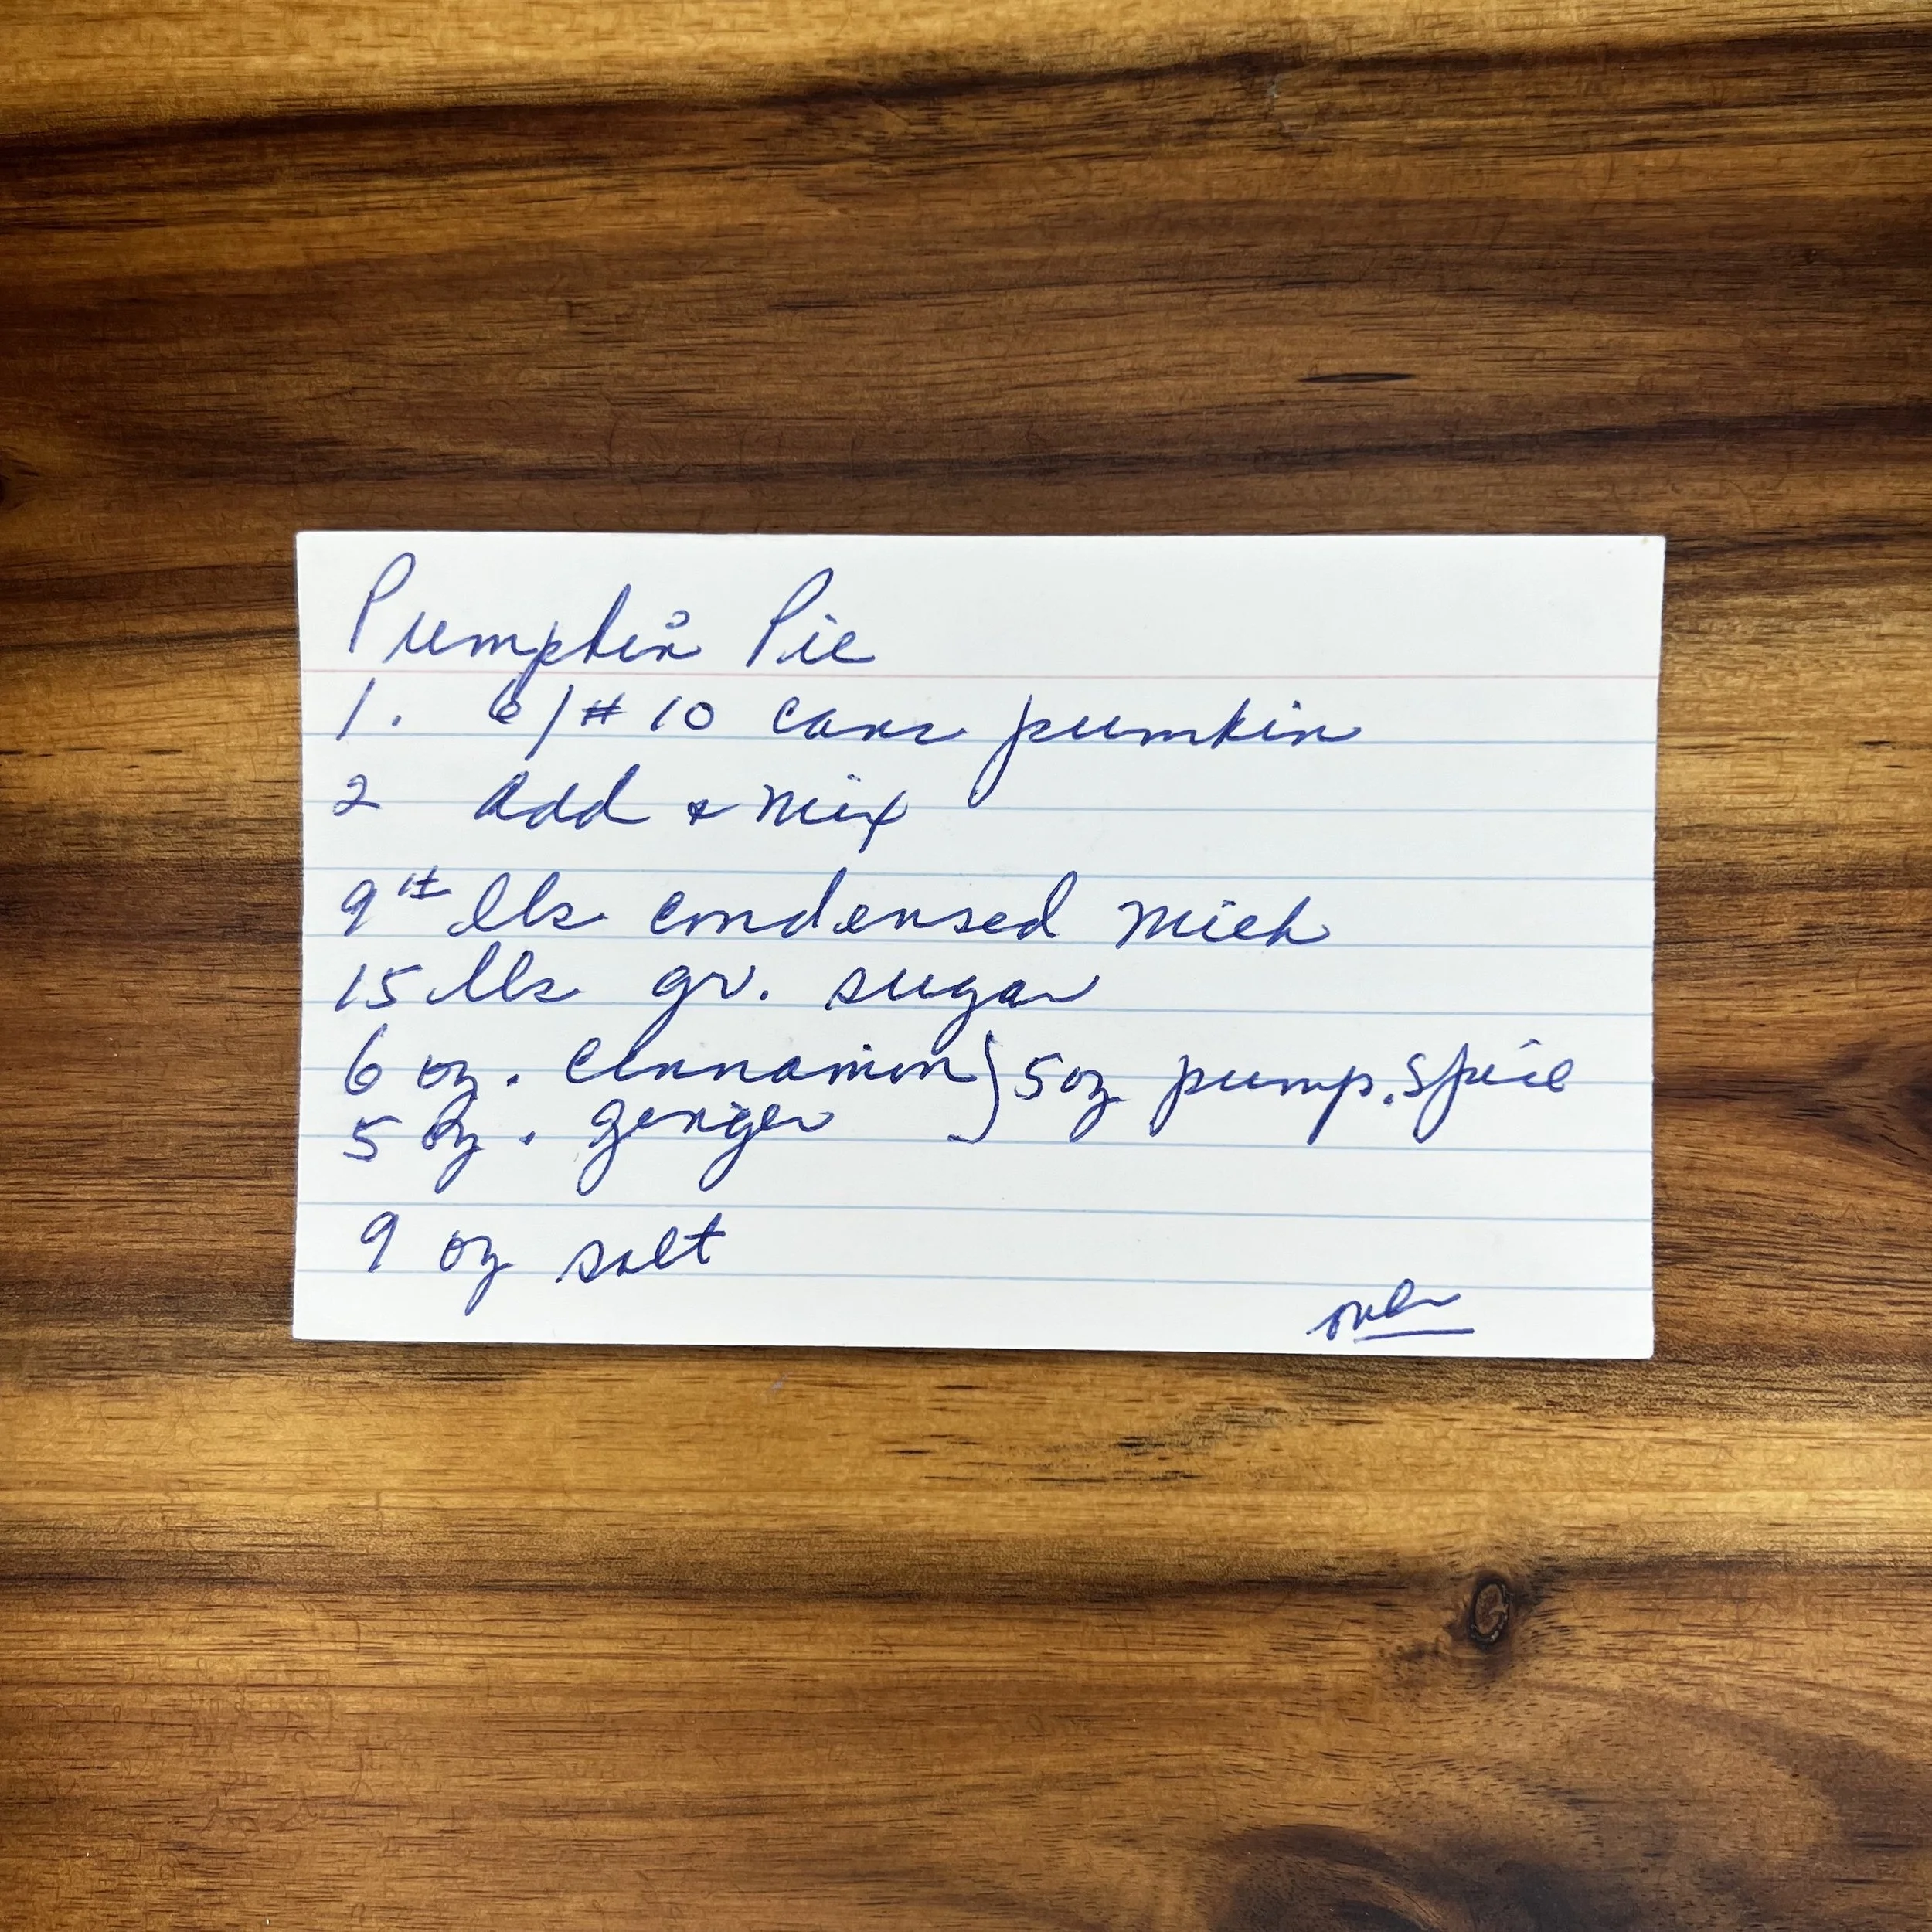 Pumpkin Pie
1. 6/#10 cans pumkin
2 Add & mix
9# lbs condensed milk
15 lbs gr. sugar
6 oz. Cinnamon } 5 oz pump. spice
5 oz. ginger
9 oz salt
over